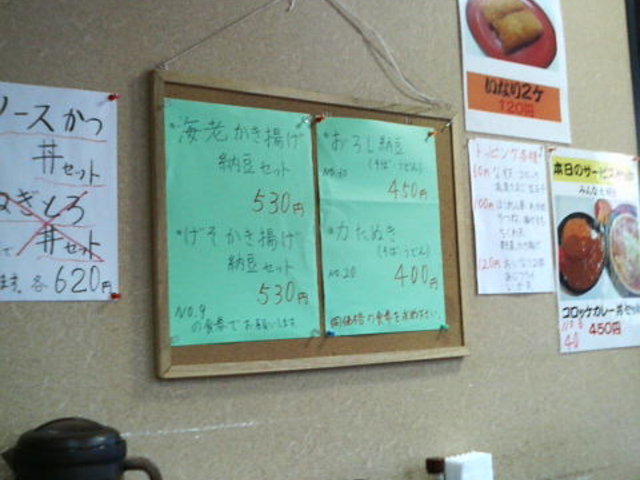 ソースかつ
丼セット
ねぎとろ
丼セット
各620円
・海老かき揚げ
納豆セット
530円
・げそかき揚げ
納豆セット
530円
NO.9
の食券でお願いします
・おろし納豆
(そば・うどん)
450円
・力たぬき
(そば・うどん)
NO.20
400円
同価格の食券を求め下さい
いなり2ケ
120円
トッピング各種
100円
120円
本日のサービスセット
コロッケカレー丼セット
450円